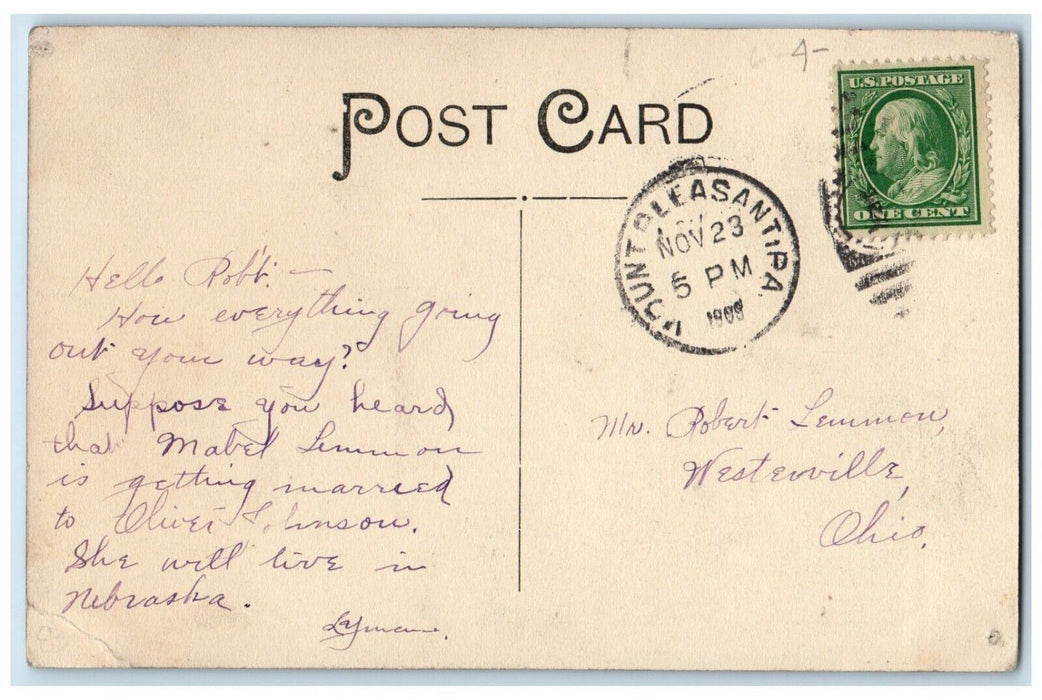 POST CARD
U.S. POSTAGE
ONE CENT
MOUNT PLEASANT, PA.
NOV 23
5 PM
1909
Hello Rob't. —
How everything going
out your way?
Suppose you heard
that Mabel Lemmon
is getting married
to Oliver Johnson.
She will live in
Nebraska.
Lyman.
Mr. Robert Lemmon,
Westerville,
Ohio.
4-